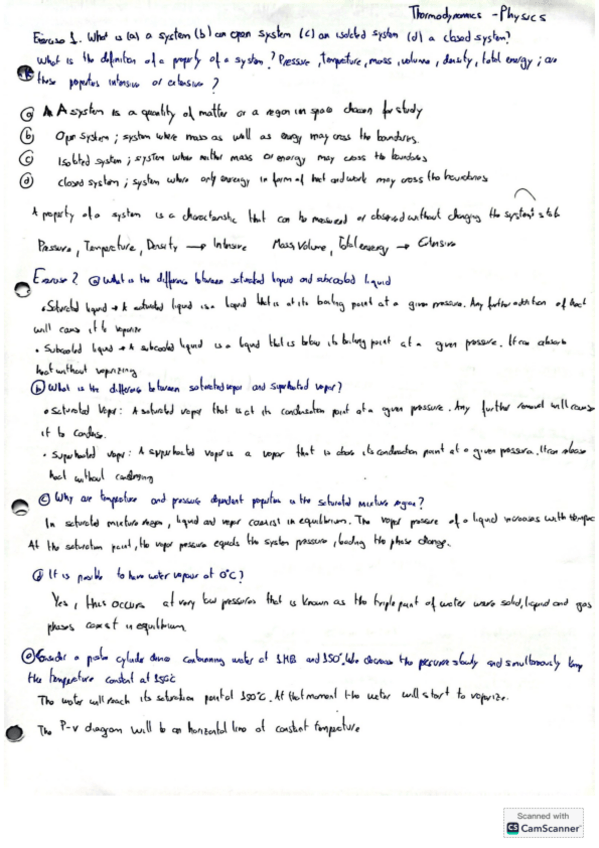 Thermodynamics - Physics
Exercise 1. What is (a) a system (b) an open system (c) an isolated system (d) a closed system?
What is the definition of a property of a system? Pressure, temperature, mass, volume, density, total energy; are
these properties intensive or extensive?
(a) A system is a quantity of matter or a region in space chosen for study
(b) Open system; system where mass as well as energy may cross the boundaries.
(c) Isolated system; system where neither mass or energy may cross the boundaries
(d) closed system; system where only energy in form of heat and work may cross the boundaries
A property of a system is a characteristic that can be measured or observed without changing the system's state
Pressure, Temperature, Density → Intensive Mass, Volume, Total energy → Extensive
Exercise 2 (a) What is the difference between saturated liquid and subcooled liquid
• Saturated liquid → A saturated liquid is a liquid that is at its boiling point at a given pressure. Any further addition of heat
will cause it to vaporize
• Subcooled liquid → A subcooled liquid is a liquid that is below its boiling point at a given pressure. It can absorb
heat without vaporizing
(b) What is the difference between saturated vapor and superheated vapor?
• Saturated Vapor: A saturated vapor that is at its condensation point at a given pressure. Any further removal will cause
it to condense.
• Superheated vapor: A superheated vapor is a vapor that is above its condensation point at a given pressure. It can release
heat without condensing
(c) Why are temperature and pressure dependent properties in the saturated mixture region?
In saturated mixture region, liquid and vapor coexist in equilibrium. The vapor pressure of a liquid increases with temperature
At the saturation point, the vapor pressure equals the system pressure, leading the phase change.
(d) It is possible to have water vapour at 0°C?
Yes, this occurs at very low pressures that is known as the triple point of water were solid, liquid and gas
phases coexist in equilibrium
(e) Consider a piston cylinder device containing water at 1 MPa and 150°C. We decrease the pressure slowly and simultaneously keep
the temperature constant at 150°C
The water will reach its saturation point at 150°C. At that moment the water will start to vaporize.
The P-v diagram will be an horizontal line at constant temperature
Scanned with
CS CamScanner